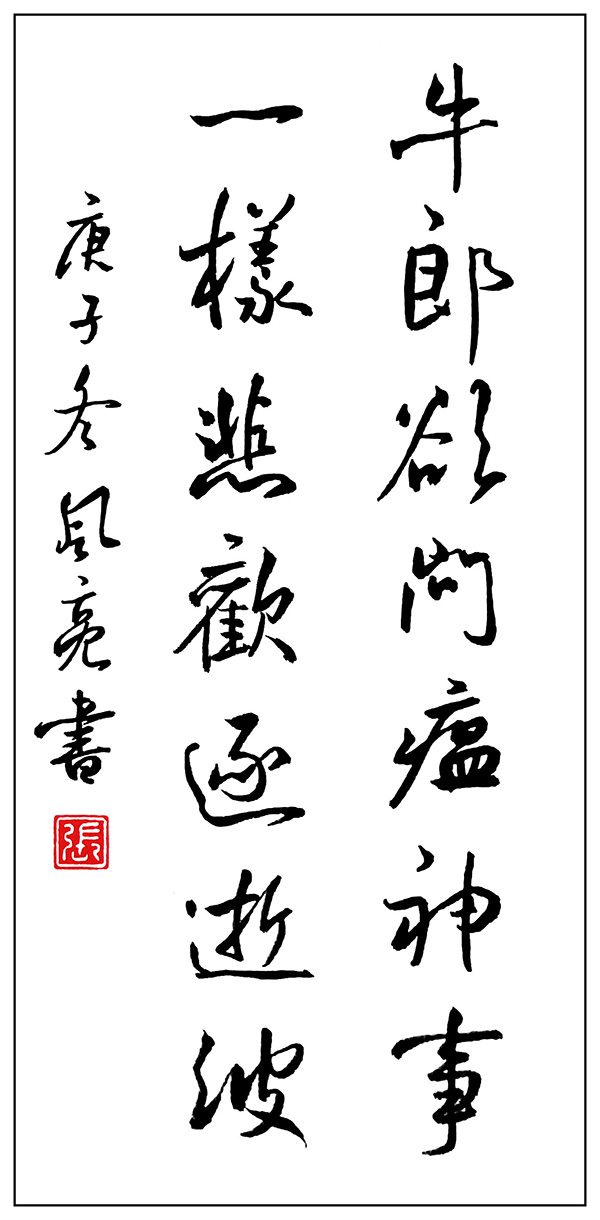 牛郎欲問瘟神事
一樣悲歡逐逝波
庚子冬風亮書
張